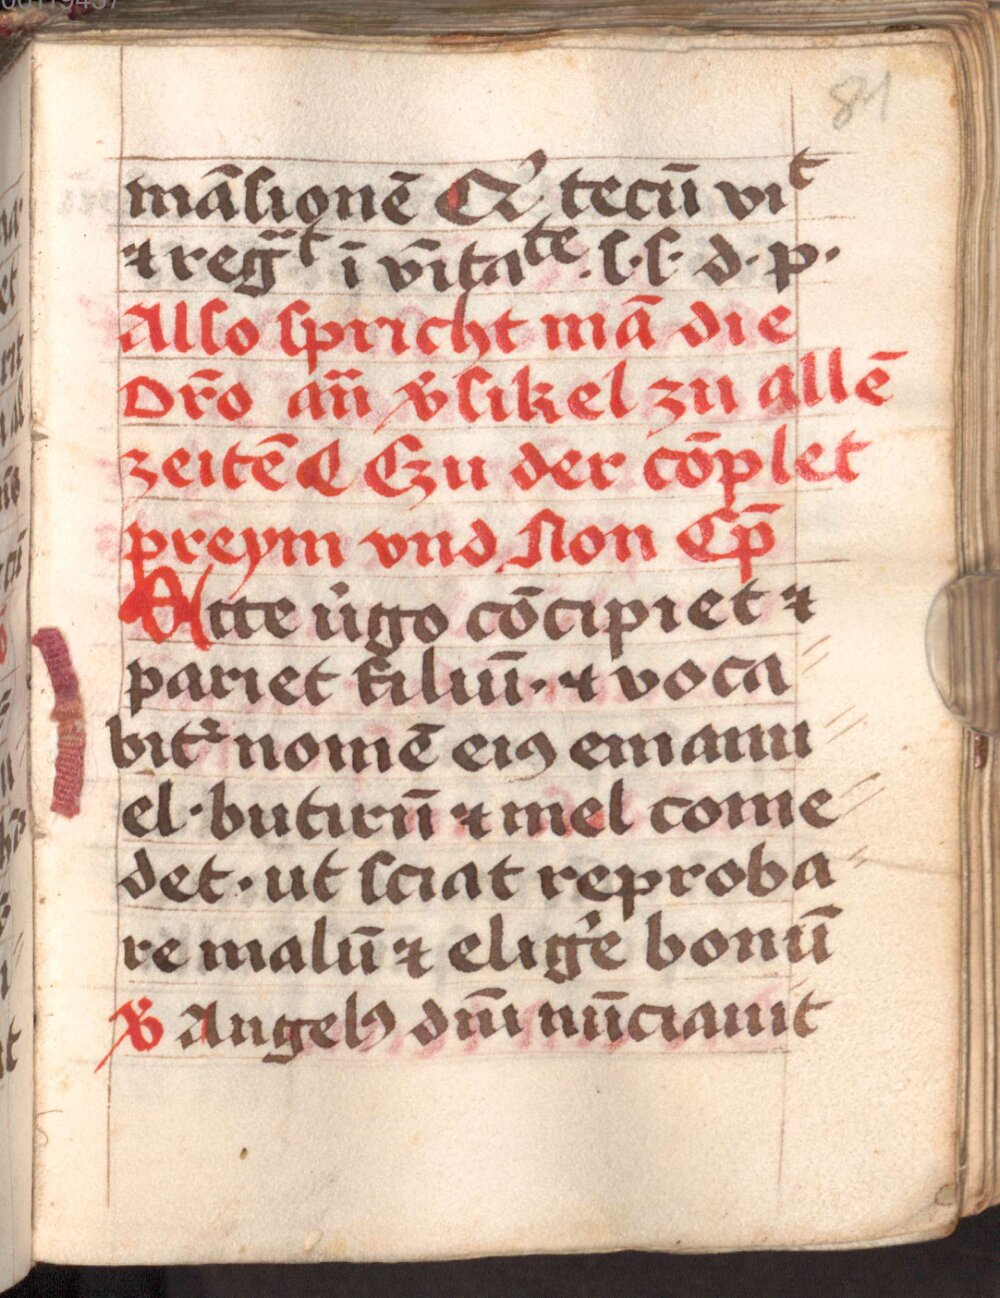 84
mãsionē Qͥ tecū viᵗ
⁊ regᷓᵗ ī vͥnitaᵗᵉ. s. s. d. p.
Also spricht mā die
Oro̅ an̄ v̕sikel zu allē
zeitē Czu der cōplet
preym vnd Non Cp̄
Atte v̕go cōcipiet ⁊
pariet filiū. ⁊ voca
bitᷣ nomē eiꝰ emanu
el. butirū ⁊ mel come
det. ut sciat reproba
re malū ⁊ elig̕e bonū
℣ Angelꝰ dn̄i nūciauit